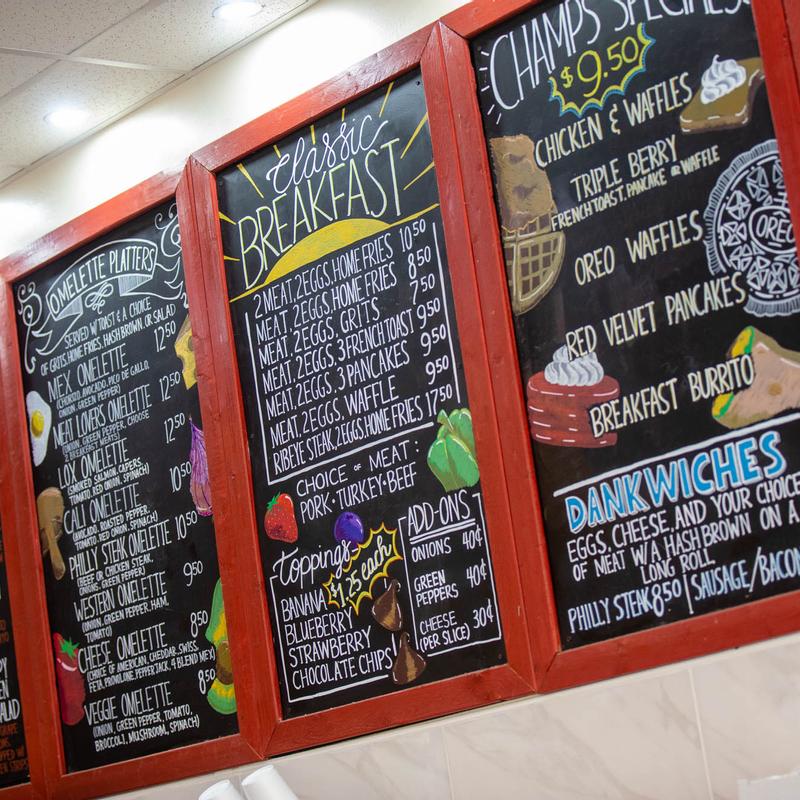 OMELETTE PLATTERS
SERVED W/TOAST & A CHOICE
OF GRITS, HOME FRIES, HASH BROWN, OR SALAD
MEX OMELETTE 12.50
(CHORIZO, AVOCADO, PICO DE GALLO,
ONION, GREEN PEPPER)
MEAT LOVERS OMELETTE 12.50
(ONION, GREEN PEPPER, CHOOSE
BREAKFAST MEATS)
LOX OMELETTE 12.50
(SMOKED SALMON, CAPERS,
TOMATO, RED ONION, SPINACH)
CALI OMELETTE 10.50
(AVOCADO, ROASTED PEPPER,
TOMATO, RED ONION, SPINACH)
PHILLY STEAK OMELETTE 10.50
(BEEF OR CHICKEN STEAK,
ONIONS, GREEN PEPPER)
WESTERN OMELETTE 9.50
(ONION, GREEN PEPPER, HAM,
TOMATO)
CHEESE OMELETTE 8.50
(CHOICE OF AMERICAN, CHEDDAR, SWISS,
FETA, PROVOLONE, PEPPERJACK, 4 BLEND MEX)
VEGGIE OMELETTE 8.50
(ONION, GREEN PEPPER, TOMATO,
BROCCOLI, MUSHROOM, SPINACH)
Classic
BREAKFAST
2 MEAT, 2 EGGS, HOME FRIES 10.50
MEAT, 2 EGGS, HOME FRIES 8.50
MEAT, 2 EGGS, GRITS 7.50
MEAT, 2 EGGS, 3 FRENCH TOAST 9.50
MEAT, 2 EGGS, 3 PANCAKES 9.50
MEAT, 2 EGGS, WAFFLE 9.50
RIBEYE STEAK, 2 EGGS, HOME FRIES 17.50
CHOICE OF MEAT:
PORK · TURKEY · BEEF
Toppings
$1.25 each
BANANA
BLUEBERRY
STRAWBERRY
CHOCOLATE CHIPS
ADD-ONS
ONIONS 40¢
GREEN
PEPPERS 40¢
CHEESE
(PER SLICE) 30¢
CHAMPS SPECIALS
$9.50
CHICKEN & WAFFLES
TRIPLE BERRY
FRENCH TOAST, PANCAKE OR WAFFLE
OREO WAFFLES
OREO
RED VELVET PANCAKES
BREAKFAST BURRITO
DANKWICHES
EGGS, CHEESE, AND YOUR CHOICE
OF MEAT W/ A HASH BROWN ON A
LONG ROLL
PHILLY STEAK 8.50 | SAUSAGE/BACON